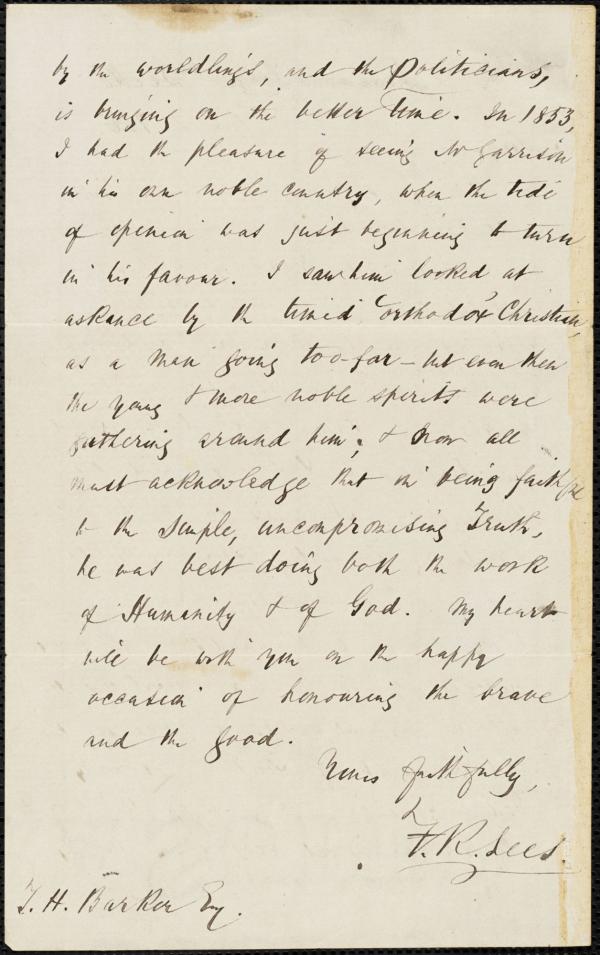 by the worldlings, and the Politicians,
is bringing on the better Time. In 1853,
I had the pleasure of seeing Mr Garrison
in his own noble country, when the tide
of opinion was just beginning to turn
in his favour. I saw him looked at
askance by the timid 'orthodox' Christian,
as a man going too-far – but even then
the young & more noble spirits were
gathering around him; & now all
must acknowledge that in being faithful
to the simple, uncompromising Truth,
he was best doing both the work
of Humanity & of God. My heart
will be with you on the happy
occasion of honouring the brave
and the good.
Yours faithfully,
F. R. Lees.
T. H. Barker Esq.